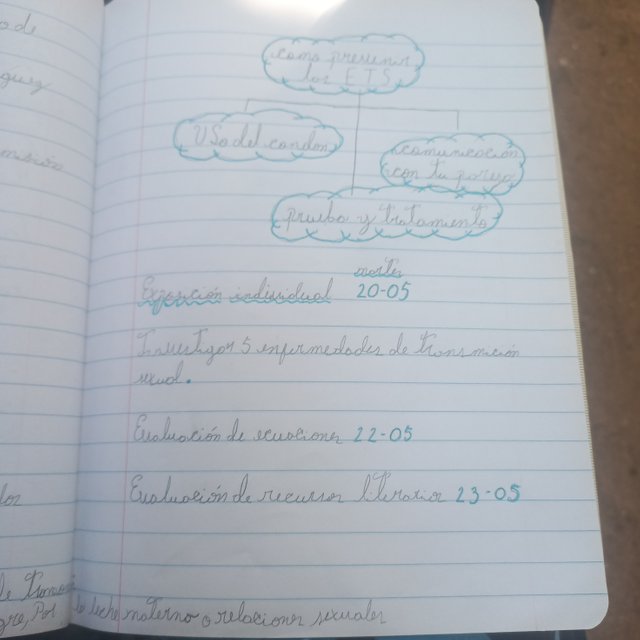 o de
como prevenir
las E T S
Uso del condon
comunicación
con tu pareja
prueba y tratamiento
martes
Exposición individual 20-05
Investigar 5 enfermedades de transmición
sexual.
Evaluación de ecuaciones 22-05
Evaluación de recursos literarios 23-05
de
gre, Por la leche materna o relaciones sexuales